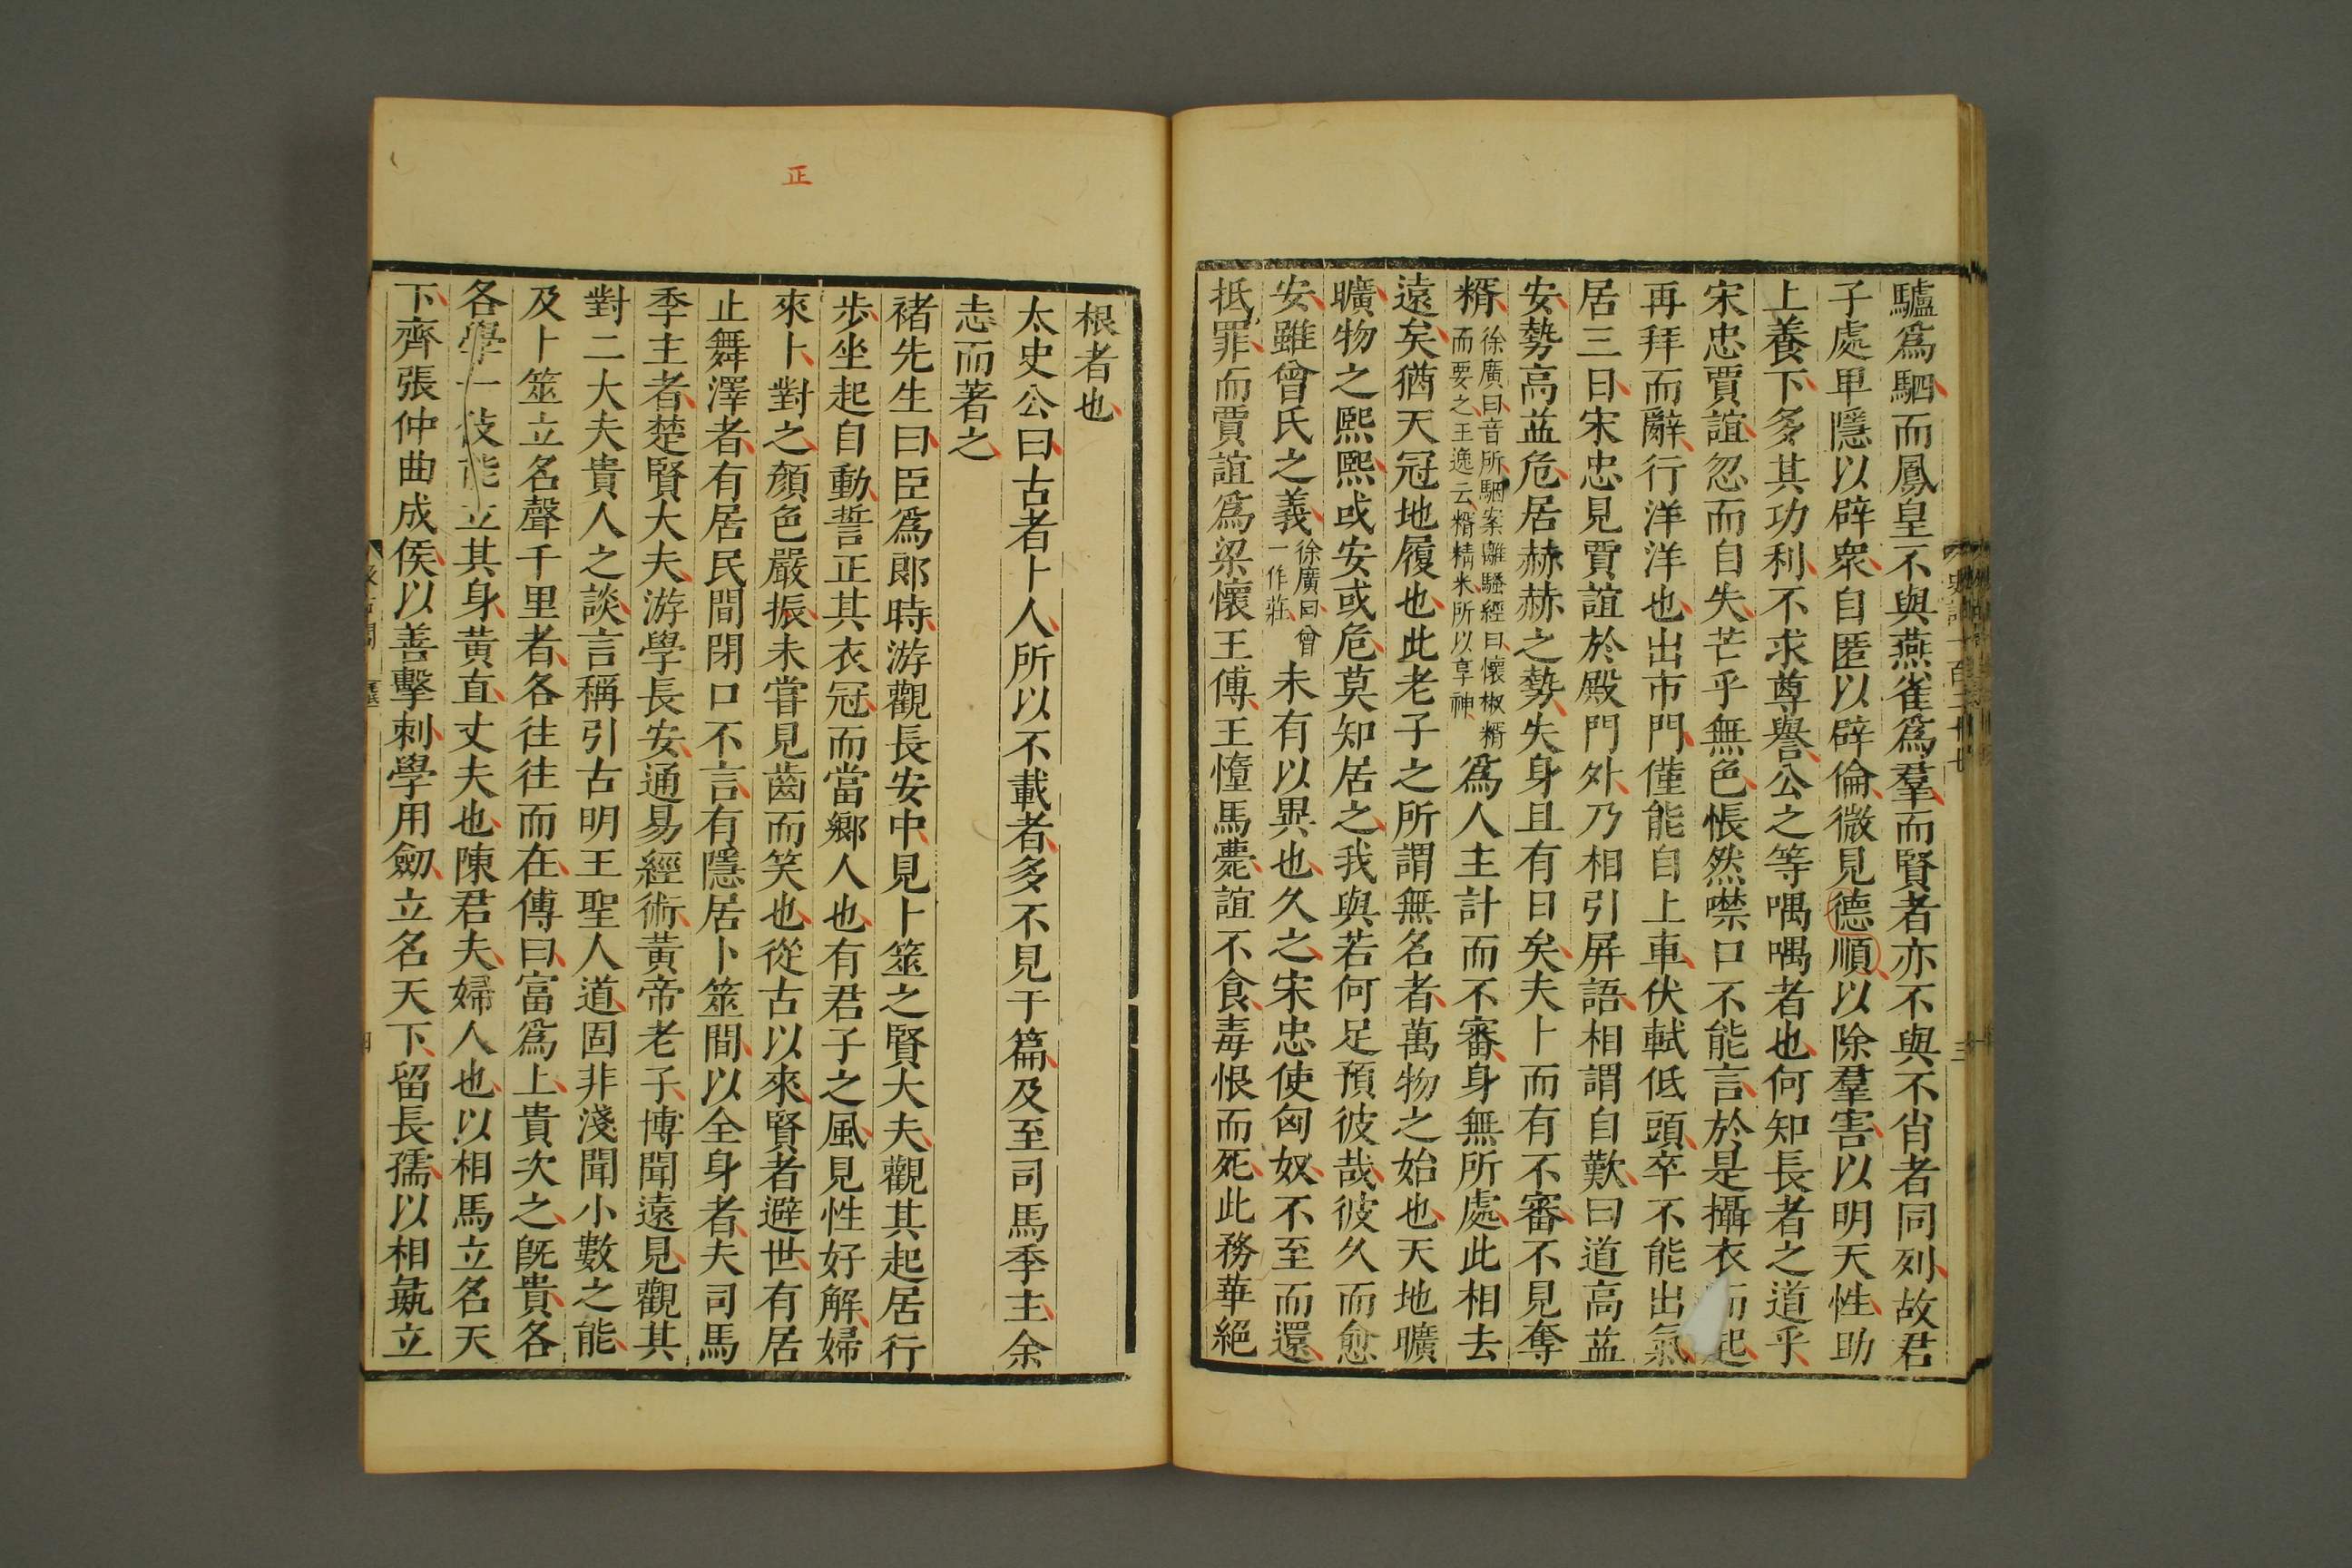 驢爲駟而鳳皇不與燕雀爲羣而賢者亦不與不肖者同列故君
子處卑隱以辟衆自匿以辟倫微見德順以除羣害以明天性助
上養下多其功利不求尊譽公之等喁喁者也何知長者之道乎
宋忠賈誼忽而自失芒乎無色悵然噤口不能言於是攝衣而起
再拜而辭行洋洋也出市門僅能自上車伏軾低頭卒不能出氣
居三日宋忠見賈誼於殿門外乃相引屏語相謂自歎曰道高益
安勢高益危居赫赫之勢失身且有日矣夫卜而有不審不見奪
糈徐廣曰音所駰案離騷經曰懷椒糈而要之王逸云糈精米所以享神爲人主計而不審身無所處此相去
遠矣猶天冠地履也此老子之所謂無名者萬物之始也天地曠
曠物之熙熙或安或危莫知居之我與若何足預彼哉彼久而愈
安雖曾氏之義徐廣曰曾一作莊未有以異也久之宋忠使匈奴不至而還
抵罪而賈誼爲梁懷王傅王墮馬薨誼不食毒恨而死此務華絕
根者也
太史公曰古者卜人所以不載者多不見于篇及至司馬季主余
志而著之
褚先生曰臣爲郎時游觀長安中見卜筮之賢大夫觀其起居行
步坐起自動誓正其衣冠而當鄉人也有君子之風見性好解婦
來卜對之顏色嚴振未嘗見齒而笑也從古以來賢者避世有居
止舞澤者有居民間閉口不言有隱居卜筮間以全身者夫司馬
季主者楚賢大夫游學長安通易經術黃帝老子博聞遠見觀其
對二大夫貴人之談言稱引古明王聖人道固非淺聞小數之能
及卜筮立名聲千里者各往往而在傳曰富爲上貴次之旣貴各
各學一伎能立其身黃直丈夫也陳君夫婦人也以相馬立名天
下齊張仲曲成侯以善擊刺學用劒立名天下留長孺以相彘立
正
史記一百二十七
三